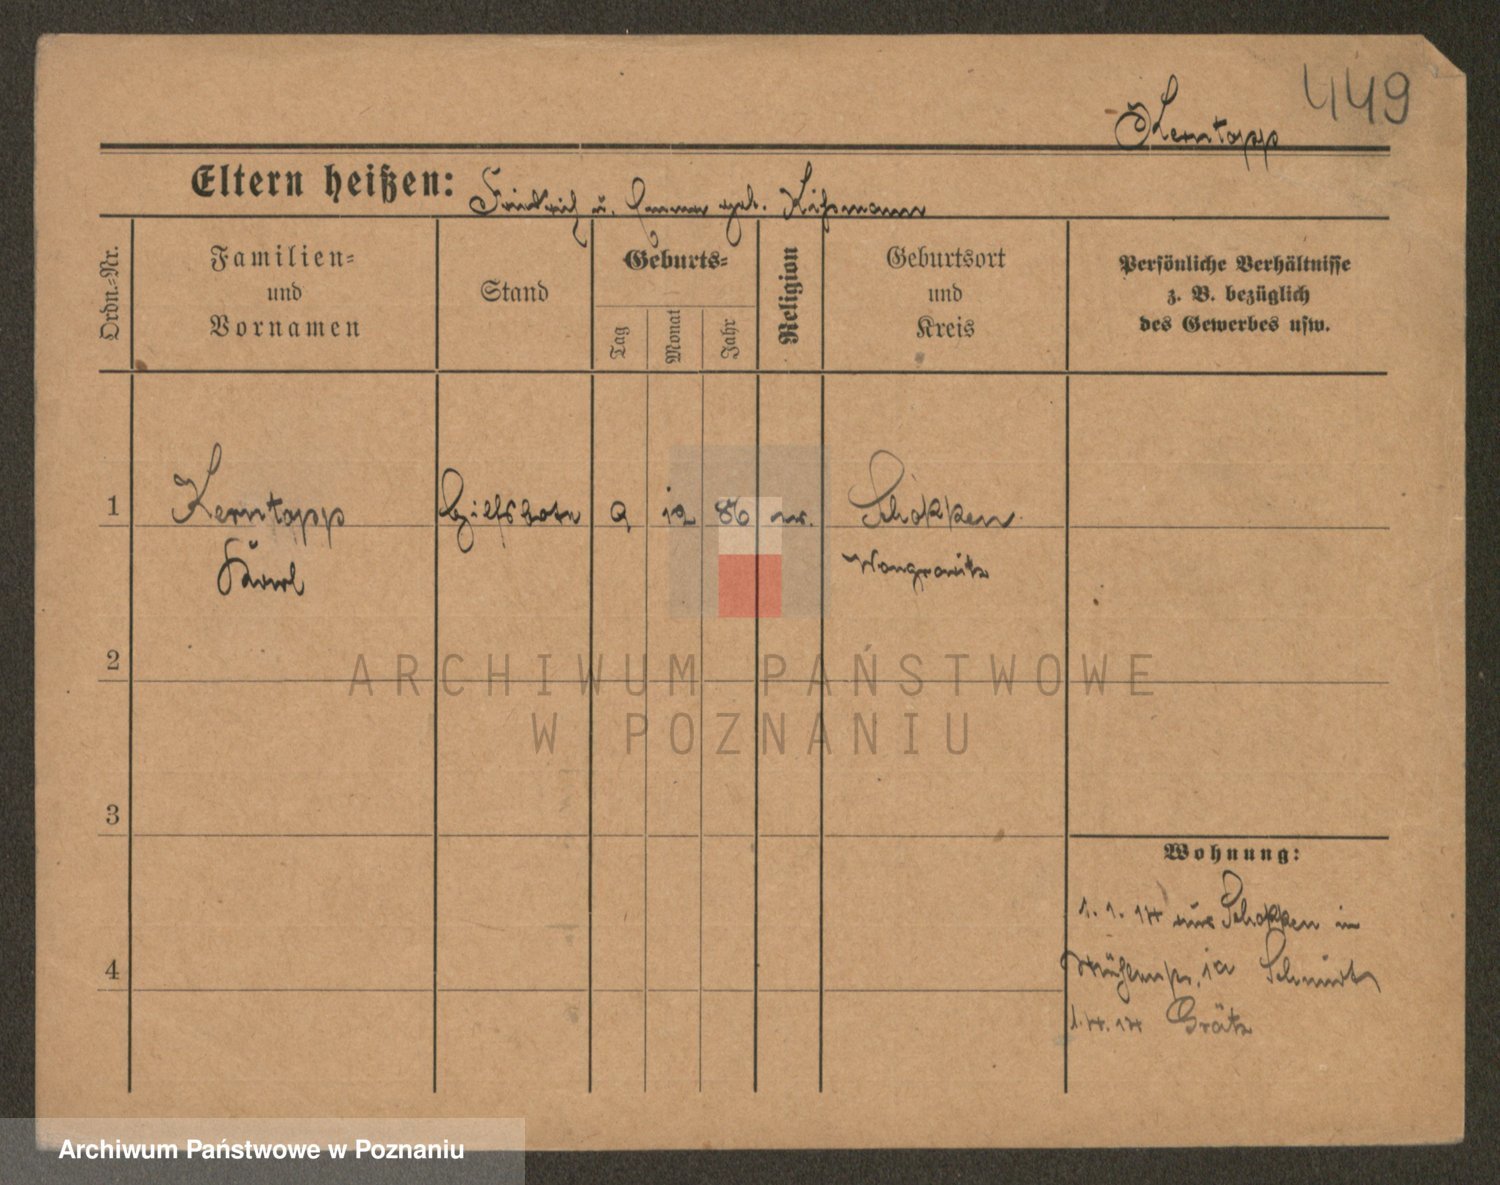 449
Kerntopp
Eltern heißen: Friedrich u. Emma geb.
Ordn.-Nr.
Familien-
und
Vornamen
Stand
Geburts-
Tag
Monat
Jahr
Religion
Geburtsort
und
Kreis
Persönliche Verhältnisse
z. B. bezüglich
des Gewerbes usw.
1 Kerntopp Hilfsbote 9 12 86 ev. Schokken
Karl Wongrowitz
2
3
4
Wohnung:
1. 1. 14 aus Schokken in
Schmidt
1. 4. 14 Grätz
ARCHIWUM PAŃSTWOWE
W POZNANIU
Archiwum Państwowe w Poznaniu